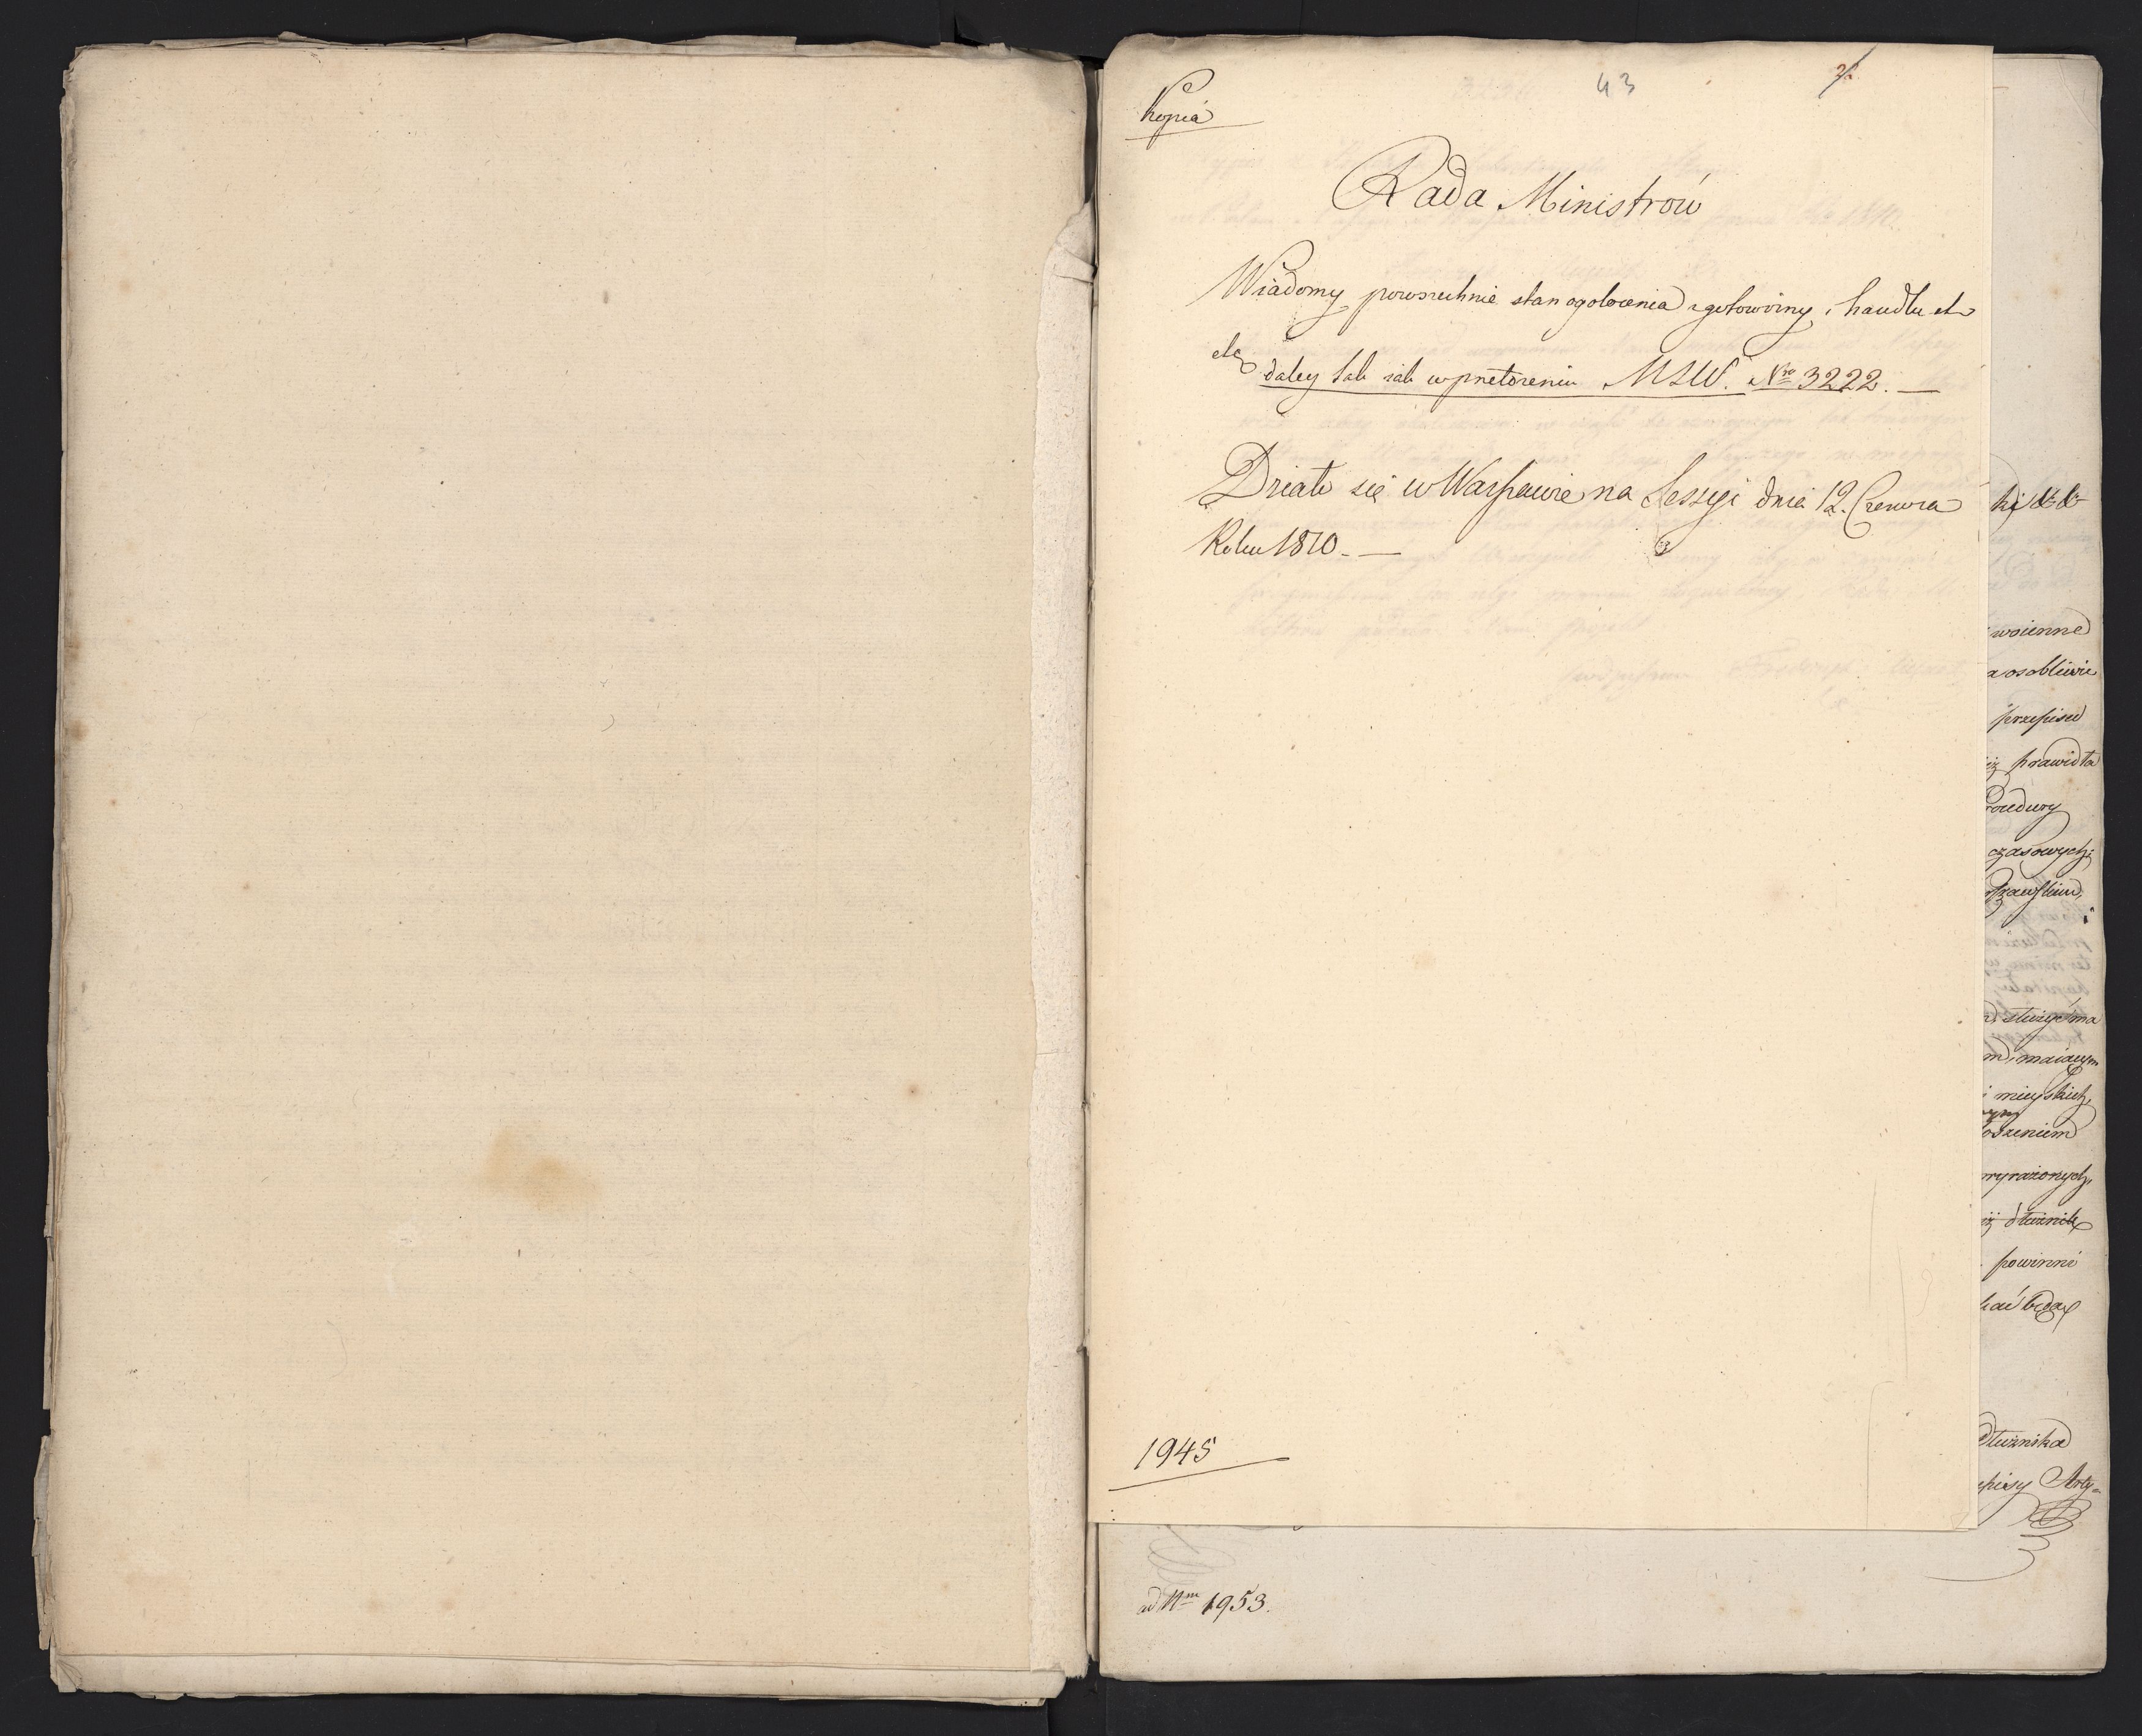 43
Kopia
Rada Ministrów
Wiadomy powszechnie stan ogołocenia z gotowizny, i handlu etc
etc daley tak iak w przełożeniu MSW. Nro 3222. —
Działo się w Warszawie na Sessyi dnia 12. Czerwca
Roku 1810. —
1945
ad Nm 1953.
woienne
a osobliwie
przepisu
prawidła
czasowych,
służyć ma
maiącym
mieyskich,
wyrażonych,
dłużnik
powinni
będą
Dłużnika
Arty-